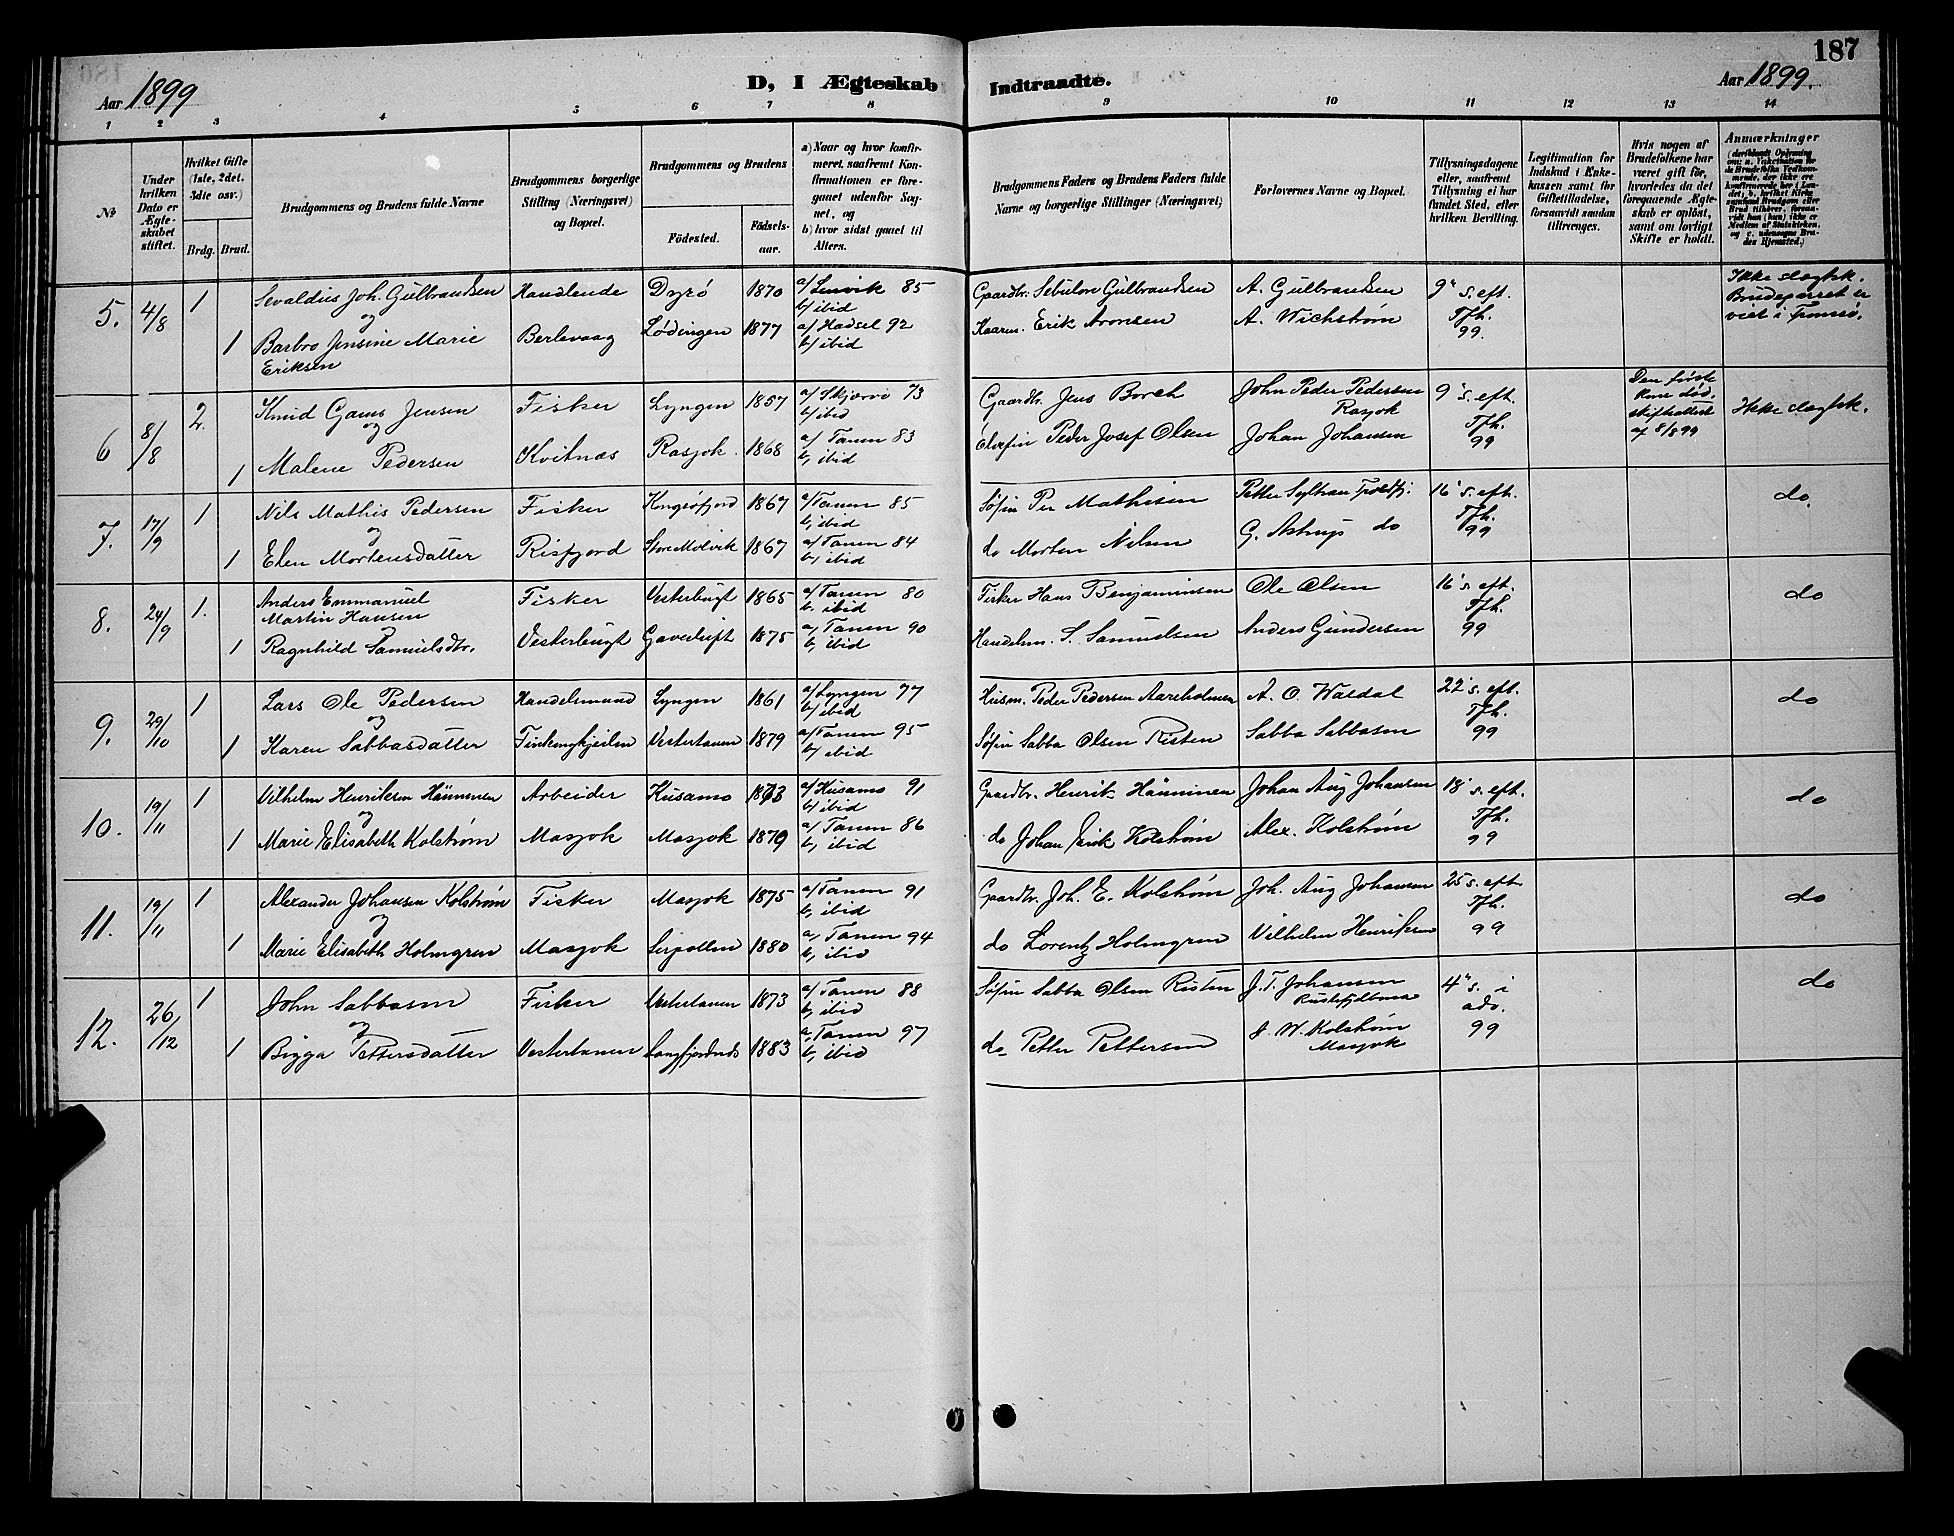 187
Aar 1899
D, I Ægteskab Indtraadte.
Aar 1899.
1 2 3 4 5 6 7 8 9 10 11 12 13 14
№
Under hvilken Dato er Ægteskabet stiftet.
Hvilket Gifte (1ste, 2det, 3dte osv.)
Brdg. Brud.
Brudgommens og Brudens fulde Navne
Brudgommens borgerlige Stilling (Næringsvei) og Bopæl.
Brudgommens og Brudens
Fødested.
Fødselsaar.
a) Naar og hvor konfirmeret, saafremt Konfirmationen er foregaaet udenfor Sognet, og
b) hvor sidst gaaet til Alters.
Brudgommens Faders og Brudens Faders fulde Navne og borgerlige Stillinger (Næringsvei)
Forlovernes Navne og Bopæl.
Tillysningsdagene eller, saafremt Tillysning ei har fundet Sted, efter hvilken Bevilling.
Legitimation for Indskud i Enkekassen samt for Giftetilladelse, forsaavidt saadan tiltrænges.
Hvis nogen af Brudefolkene har været gift før, hvorledes da det foregaaende Ægteskab er opløst, samt om lovligt Skifte er holdt.
Anmærkninger
5. 4/8 1 Sevaldius Joh. Gulbrandsen Handlende Dyrö 1870 a/ Lenvik 85 Gaardbr. Sebulon Gulbrandsen A. Gulbrandsen 9' s. eft. Ikke slægtsk.
og b/ ibid Tfh. Brudeparret er
1 Barbro Jensine Marie Berlevaag Lødingen 1877 a/ Hadsel 92 Erik Aronsen A. Wichstrøm 99. viet i Tromsø.
Eriksen b/ ibid
6 8/8 2. Knud Gams Jensen Fisker Lyngen 1857 a/ Skjærvø 73 Gaardbr. Jens Borch John Peder Pedersen 9' s. eft. Den første Kone død. Ikke slægtsk.
og b/ ibid Rasjok Tfh. skifteattest
1 Malene Pedersen Kvitnæs Rasjok. 1868 a/ Tanen 83 Elvefin Peder Josef Olsen Johan Johansen 99 af 8/8 99
b, ibid
7. 17/9 1 Nils Mathis Pedersen Fisker Kongsöfjord 1867 a/ Tanen 85 Søfin Per Mathisen 16' s. eft. do.
og b, ibid Tfh.
1 Elen Mortensdatter Risfjord Store Molvik 1867 a/ Tanen 84 do Morten Nilsen G. Astrup do 99
b, ibid
8. 24/9 1. Anders Emmanuel Fisker Vesterbugt 1865 a/ Tanen 80 Fisker Hans Benjaminsen Ole Olsen 16' s. eft. do
Martin Hansen b. ibid Tfh.
og
1 Ragnhild Samuelsdtr. Vesterbugt 1875 a, Tanen 90 Handelsm. S. Samuelsen Anders Gundersen 99
b, ibid
9. 29/10 1 Lars Ole Pedersen Handelsmand Lyngen 1861 a/ Lyngen 77 Husm. Peder Pedersen Aarsholmen 22' s. eft. do
og b/ ibid Tfh.
1 Karen Sabbasdatter Vestertanen 1879 a/ Tanen 95 Søfin Sabba Olsen Risten Sabba Sabbasen 99
b/ ibid
10. 19/11 1 Vilhelm Henriksen Hänninen Arbeider Kusamo 1873 a/ Kusamo 91 Gaardbr. Henrik Hänninen Johan Aug Johansen 18' s. eft. do
og b/ ibid Tfh.
1 Marie Elisabeth Kolstrøm Masjok Masjok 1870 a/ Tanen 86 do Johan Erik Kolstrøm Alex. Kolstrøm 99
b, ibid
11. 19/11 1 Alexander Johansen Kolstrøm Fisker Masjok 1875 a/ Tanen 91 Gaardbr. Joh. E. Kolstrøm Joh. Aug Johansen 25' s. eft. do
og b, ibid Tfh.
1 Marie Elisabeth Holmgren Masjok 1880 a, Tanen 94 do Lorentz Holmgren Vilhelm Henriksen 99
b, ibid
12. 26/12 1 John Sabbasen Fisker Vestertanen 1873 a/ Tanen 88 Søfin Sabba Olsen Risten J. T. Johansen 4' s. i do
og b, ibid adv.
1 Bigga Pettersdatter Vestertanen 1883 a, Tanen 97 do Petter Pettersen J. W. Kolstrøm 99
b, ibid Masjok